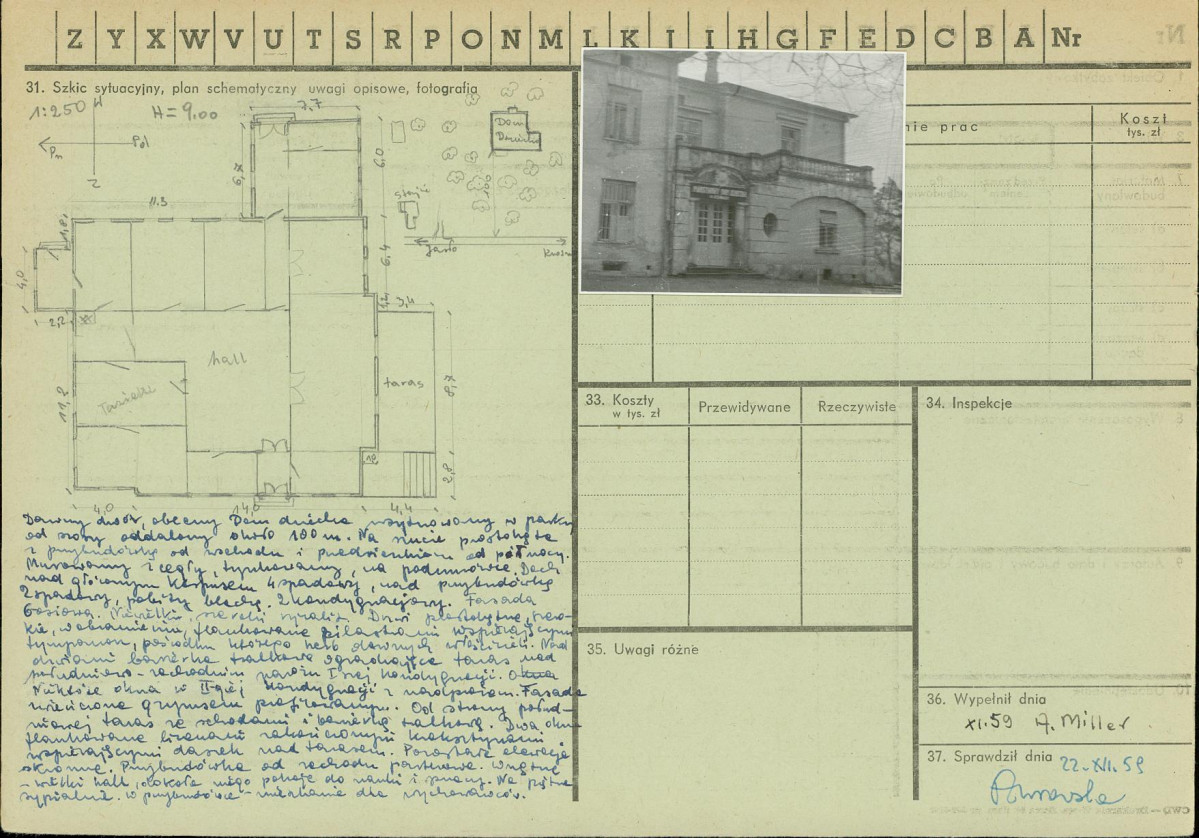 Z Y X W V U T S R P O N M L K I I H G F E D C B A Nr
31. Szkic sytuacyjny, plan schematyczny uwagi opisowe, fotografia
1:250
H = 9,00
Pn
Płd
7,7
6,7
6,0
Dom Dziecka
100
Jasło
11.3
1,8
4,0
6,4
2,2
3,4
hall
taras
8,7
11,2
2,8
4,0
14,0
4,4
Dawny dwór, obecny Dom dziecka usytuowany w parku
od szosy oddalony około 100 m. Na rzucie prostokąta
z przybudówką od wschodu i przedsionkiem od północy.
Murowany z cegły, tynkowany, na podmurówce. Dach
nad głównym korpusem 4 spadowy, nad przybudówką
2 spadowy, pobity blachą. 2 kondygnacjowy. Fasada
6 osiowa. Drzwi prostokątne
w obramieniu, flankowane pilastrami wspierającymi
tympanon, pośrodku którego herb dawnych właścicieli. Nad
drzwiami balustrada tralkowa ogradzająca taras nad
południowo-zachodnim I-szej kondygnacji.
Niektóre okna w II-giej kondygnacji z nadprożami. Fasada
zwieńczona gzymsem profilowanym. Od strony połud-
niowej taras ze schodami i balustradą tralkową. Dwa okna
flankowane
wspierającymi daszek nad tarasem. Pozostałe elewacje
skromne. Przybudówka od zachodu parterowa. Wnętrze
- wielki hall, dokoła niego pokoje do nauki i Na piętrze
sypialnie. W przybudówce - mieszkanie dla wychowawców.
nie prac
Koszt
tys. zł
33. Koszty
w tys. zł
Przewidywane
Rzeczywiste
34. Inspekcje
35. Uwagi różne
36. Wypełnił dnia
XI.59 A. Miller
37. Sprawdził dnia 22.XII.59